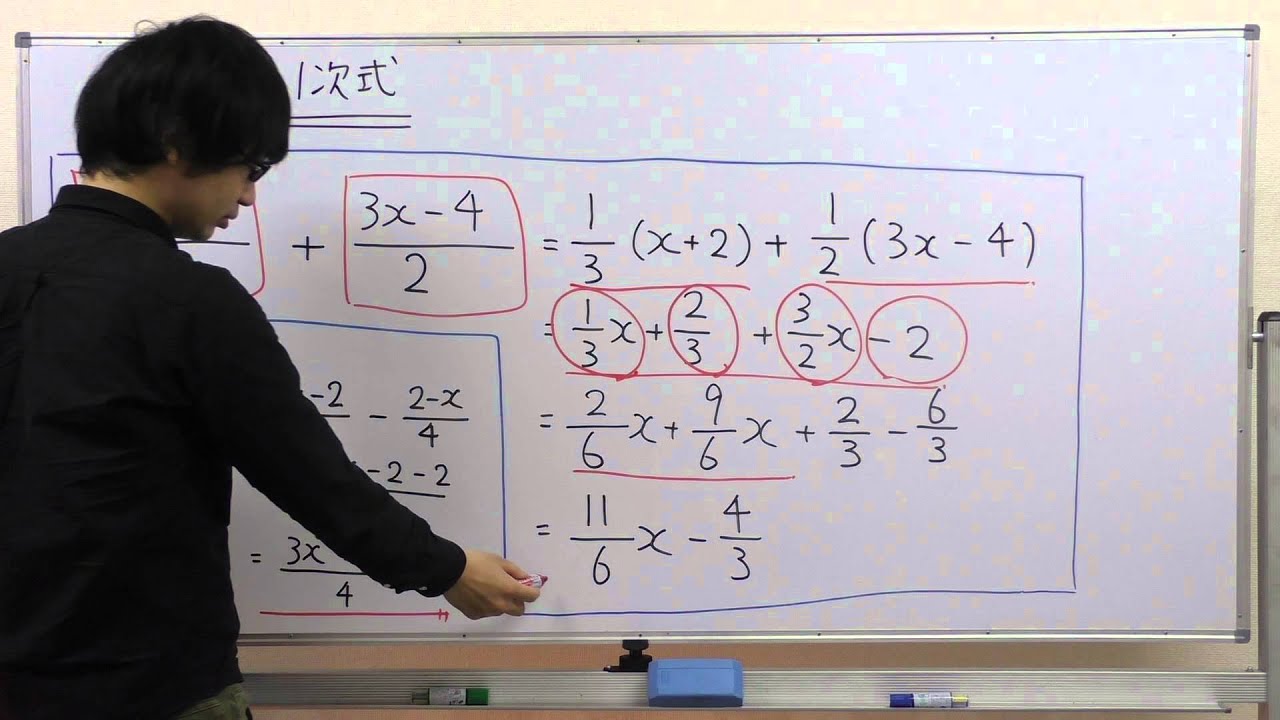 1次式
+ (3x-4)/2 = 1/3 (x+2) + 1/2 (3x-4)
= 1/3 x + 2/3 + 3/2 x - 2
= 2/6 x + 9/6 x + 2/3 - 6/3
= 11/6 x - 4/3
-2 - (2-x)/4
-2-2
= 3x
4